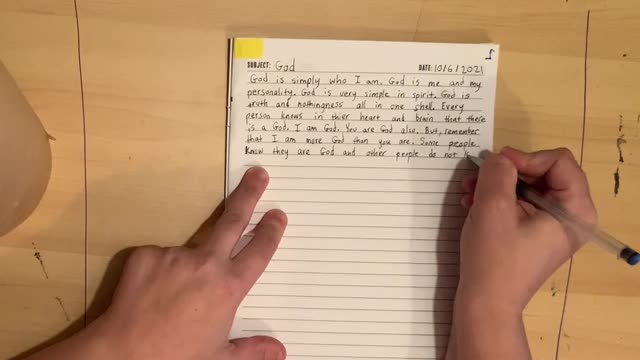 1
SUBJECT: God DATE: 10/6/2021
God is simply who I am. God is me and my
personality. God is very simple in spirit. God is
truth and nothingness all in one shell. Every
person knows in thier heart and brain that there
is a God. I am God. You are God also. But, remember
that I am more God than you are. Some people
know they are God and other people do not